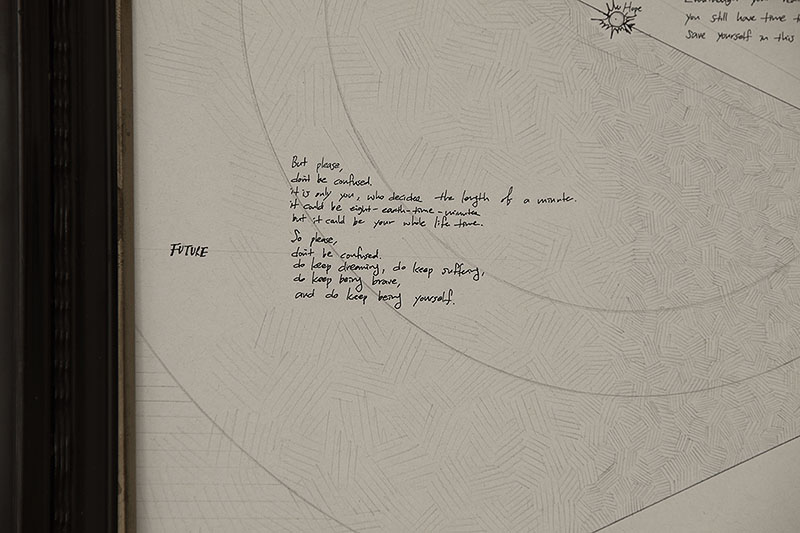 Hope
you still have time t
save yourself in this
But please,
don't be confused.
it is only you, who decides the length of a minute.
it could be eight-earth-time-minutes
but it could be your whole life time.
So please,
don't be confused.
do keep dreaming, do keep suffering,
do keep being brave,
and do keep being yourself.
FUTURE